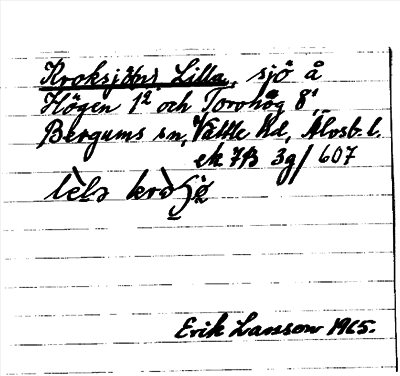 Kroksjö(n), Lilla, sjö å
Högen 1² och Torvhög 8¹,
Bergums sn, Vättle hd, Älvsb. l.
ek 7B 3g/607
Erik Larsson 1965.